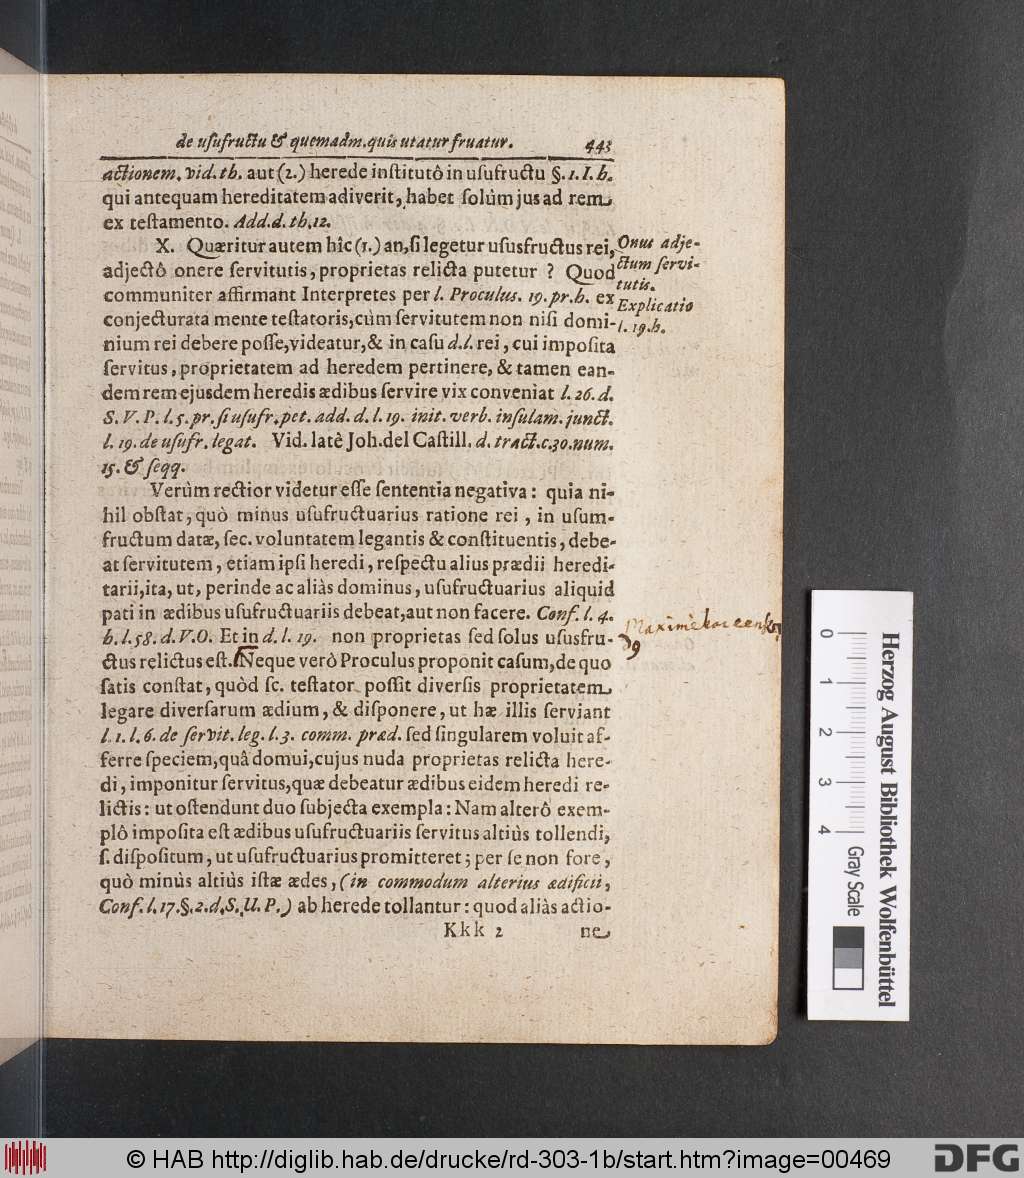 de usufructu & quemadm. quis utatur fruatur. 443
actionem. vid. th. aut (2.) herede institutô in usufructu §. 1. I. h.
qui antequam hereditatem adiverit, habet solùm jus ad rem
ex testamento. Add. d. th. 12.
X. Quæritur autem hîc (1.) an, si legetur ususfructus rei,
adjectô onere servitutis, proprietas relicta putetur ? Quod
communiter affirmant Interpretes per l. Proculus. 19. pr. h. ex
conjecturata mente testatoris, cùm servitutem non nisi domi-
nium rei debere posse, videatur, & in casu d. l. rei, cui imposita
servitus, proprietatem ad heredem pertinere, & tamen ean-
dem rem ejusdem heredis ædibus servire vix conveniat l. 26. d.
S. V. P. l. 5. pr. si usufr. pet. add. d. l. 19. init. verb. insulam. junct.
l. 19. de usufr. legat. Vid. latè Joh. del Castill. d. tract. c. 30. num.
15. & seqq.
Onus adje-
ctum servi-
tutis.
Explicatio
l. 19. h.
Verùm rectior videtur esse sententia negativa: quia ni-
hil obstat, quò minus usufructuarius ratione rei, in usum-
fructum datæ, sec. voluntatem legantis & constituentis, debe-
at servitutem, etiam ipsi heredi, respectu alius prædii heredi-
tarii, ita, ut, perinde ac aliàs dominus, usufructuarius aliquid
pati in ædibus usufructuariis debeat, aut non facere. Conf. l. 4.
h. l. 58. d. V. O. Et in d. l. 19. non proprietas sed solus ususfru-
ctus relictus est. Neque verò Proculus proponit casum, de quo
satis constat, quòd sc. testator possit diversis proprietatem
legare diversarum ædium, & disponere, ut hæ illis serviant
l. 1. l. 6. de servit. leg. l. 3. comm. præd. sed singularem voluit af-
ferre speciem, quâ domui, cujus nuda proprietas relicta here-
di, imponitur servitus, quæ debeatur ædibus eidem heredi re-
lictis: ut ostendunt duo subjecta exempla: Nam alterô exem-
plô imposita est ædibus usufructuariis servitus altiùs tollendi,
s. dispositum, ut usufructuarius promitteret; per se non fore,
quò minùs altiùs istæ ædes, (in commodum alterius ædificii,
Conf. l. 17. §. 2. d. S. U. P.) ab herede tollantur: quod aliàs actio-
Kkk 2 ne
Herzog August Bibliothek Wolfenbüttel
Gray Scale
0
1
2
3
4
© HAB http://diglib.hab.de/drucke/rd-303-1b/start.htm?image=00469
DFG